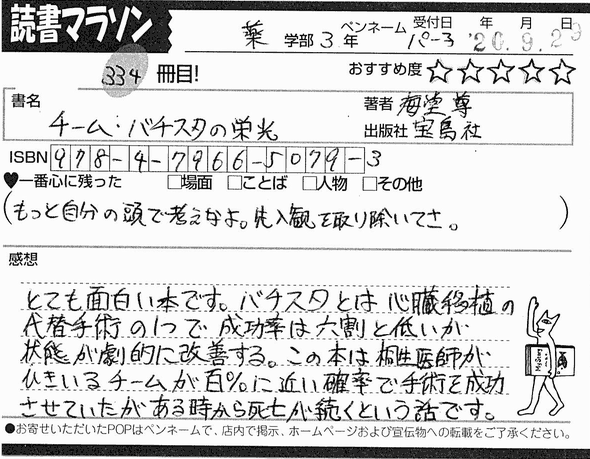 読書マラソン
薬 学部 3 年 ペンネーム パー子 受付日 年 月 日 '20.9.29
334 冊目! おすすめ度 ☆☆☆☆☆
書名 チーム・バチスタの栄光
著者 海堂尊
出版社 宝島社
ISBN 978-4-7966-5079-3
♥一番心に残った □場面 □ことば □人物 □その他
(もっと自分の頭で考えなよ。先入観を取り除いてさ。)
感想
とても面白い本です。バチスタとは心臓移植の
代替手術の1つで成功率は六割と低いが
状態が劇的に改善する。この本は桐生医師が
ひきいるチームが百%に近い確率で手術を成功
させていたがある時から死亡が続くという話です。
●お寄せいただいたPOPはペンネームで、店内で掲示、ホームページおよび宣伝物への転載をご了承ください。